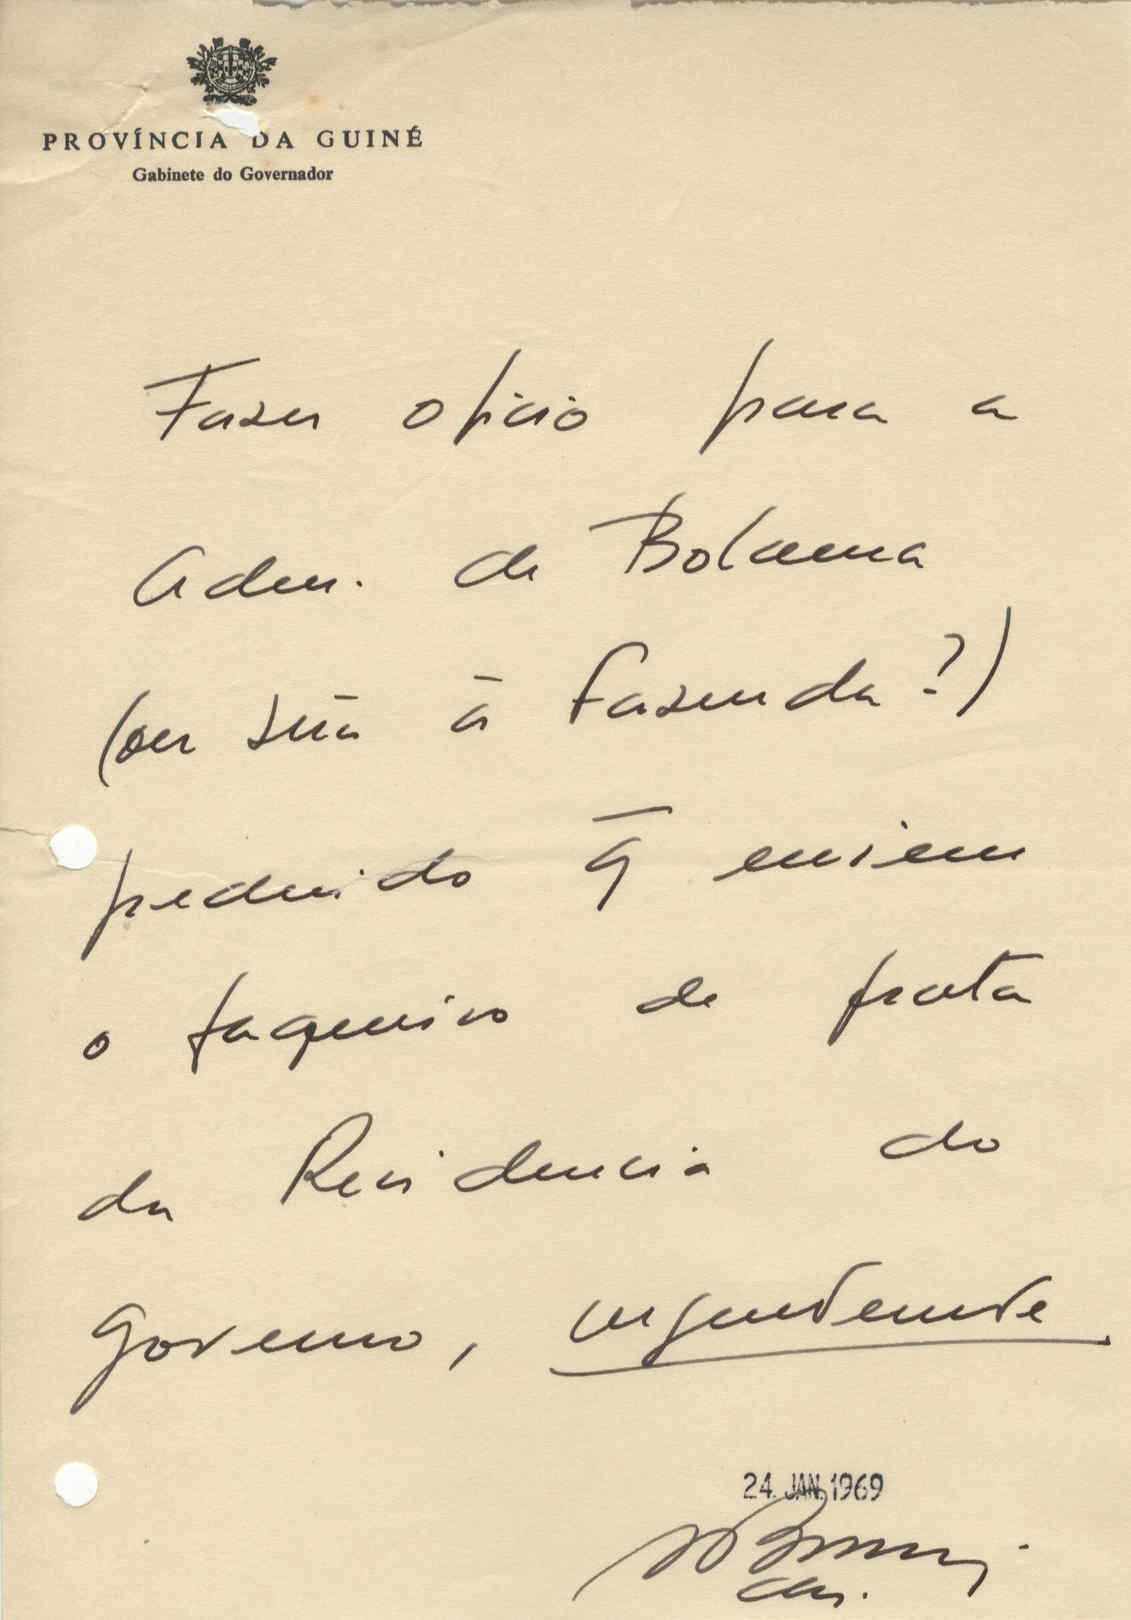 PROVÍNCIA DA GUINÉ
Gabinete do Governador
Fazer ofício para a
Adm. de Bolama
(ou será à Fazenda?)
pedindo q̄ enviem
o faqueiro de prata
da Residencia do
Governo, urgentemente
24. JAN. 1969